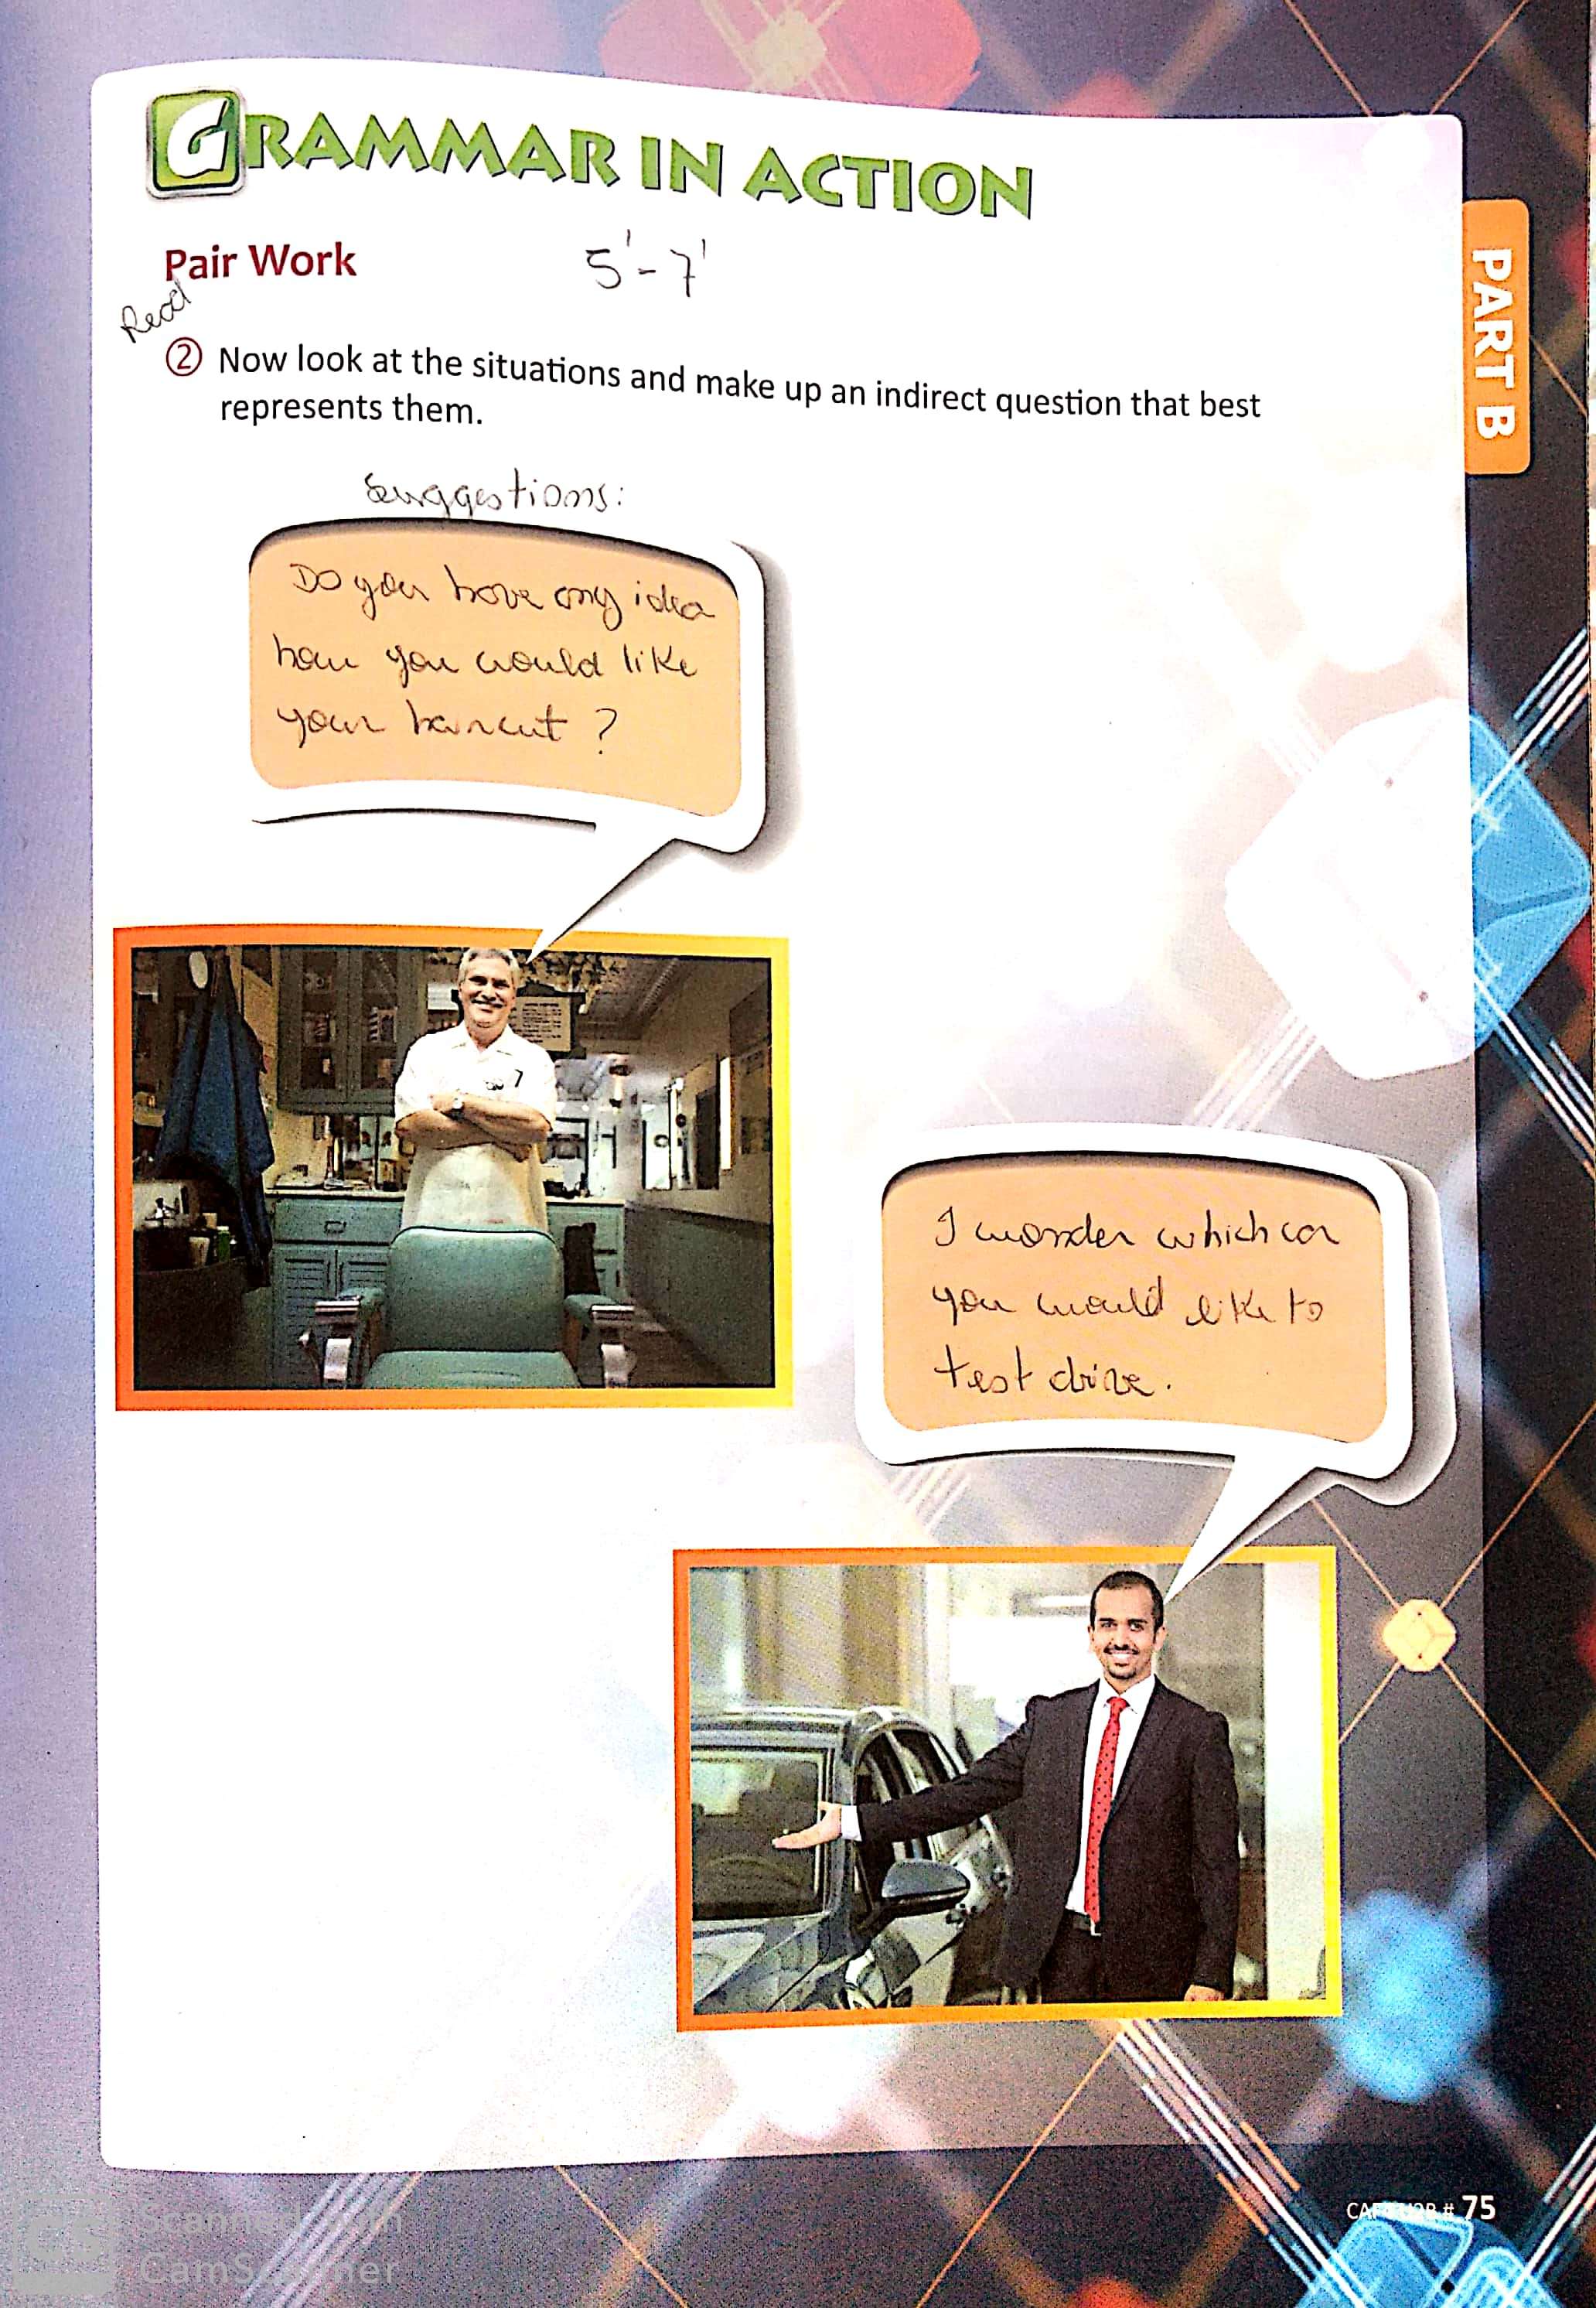 GRAMMAR IN ACTION
PART B
Pair Work
5'-7'
Read
② Now look at the situations and make up an indirect question that best
represents them.
Suggestions:
Do you have any idea
how you would like
your haircut ?
I wonder which car
you would like to
test drive.
# 75
Scanned with
CamScanner